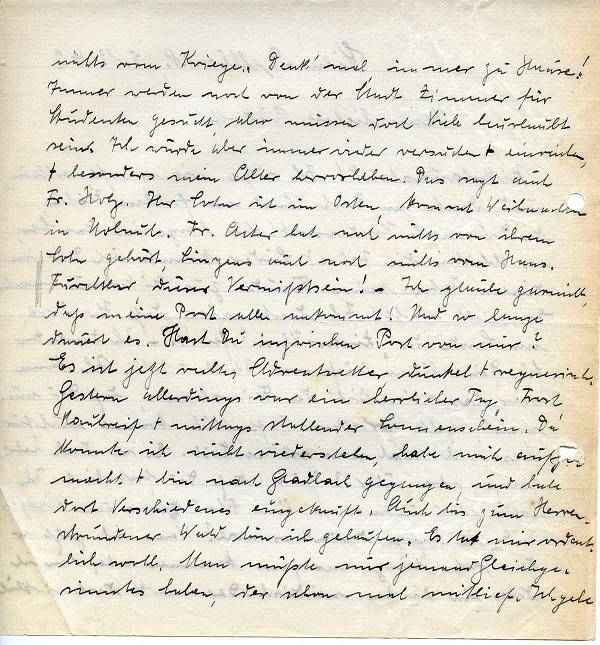 nichts vom Kriege. Denk' mal, immer zu Hause!
Immer werden noch von der Stadt Zimmer für
Studenten gesucht, also müssen doch Viele beurlaubt
sein. Ich würde aber immer wieder versuchen + einreichen,
+ besonders mein Alter hervorheben. Das sagt auch
Fr. Holz. Ihr Sohn ist im Osten, kommt Weihnachten
in Urlaub. Fr. hat noch nichts von ihrem
Sohn gehört, auch noch nichts vom Hans.
Furchtbar, dieses Vermißtsein! – Ich glaube garnicht,
daß meine Post alle ankommt! Und so lange
dauert es. Hast Du inzwischen Post von mir?
Es ist jetzt rechtes Adventwetter dunkel + regnerisch.
Gestern allerdings war ein herrlicher Tag. Frost
Rauhreif + mittags strahlender Sonnenschein. Da
konnte ich nicht widerstehen, habe mich aufge-
macht + bin nach Gladbach gegangen und habe
dort Verschiedenes eingekauft. Auch bis zum Herren-
strundener Wald bin ich gelaufen. Es tat mir ordent-
lich wohl. Man müßte nur jemand Gleichge-
sinntes haben, der schon mal mitlief. Ich gehe